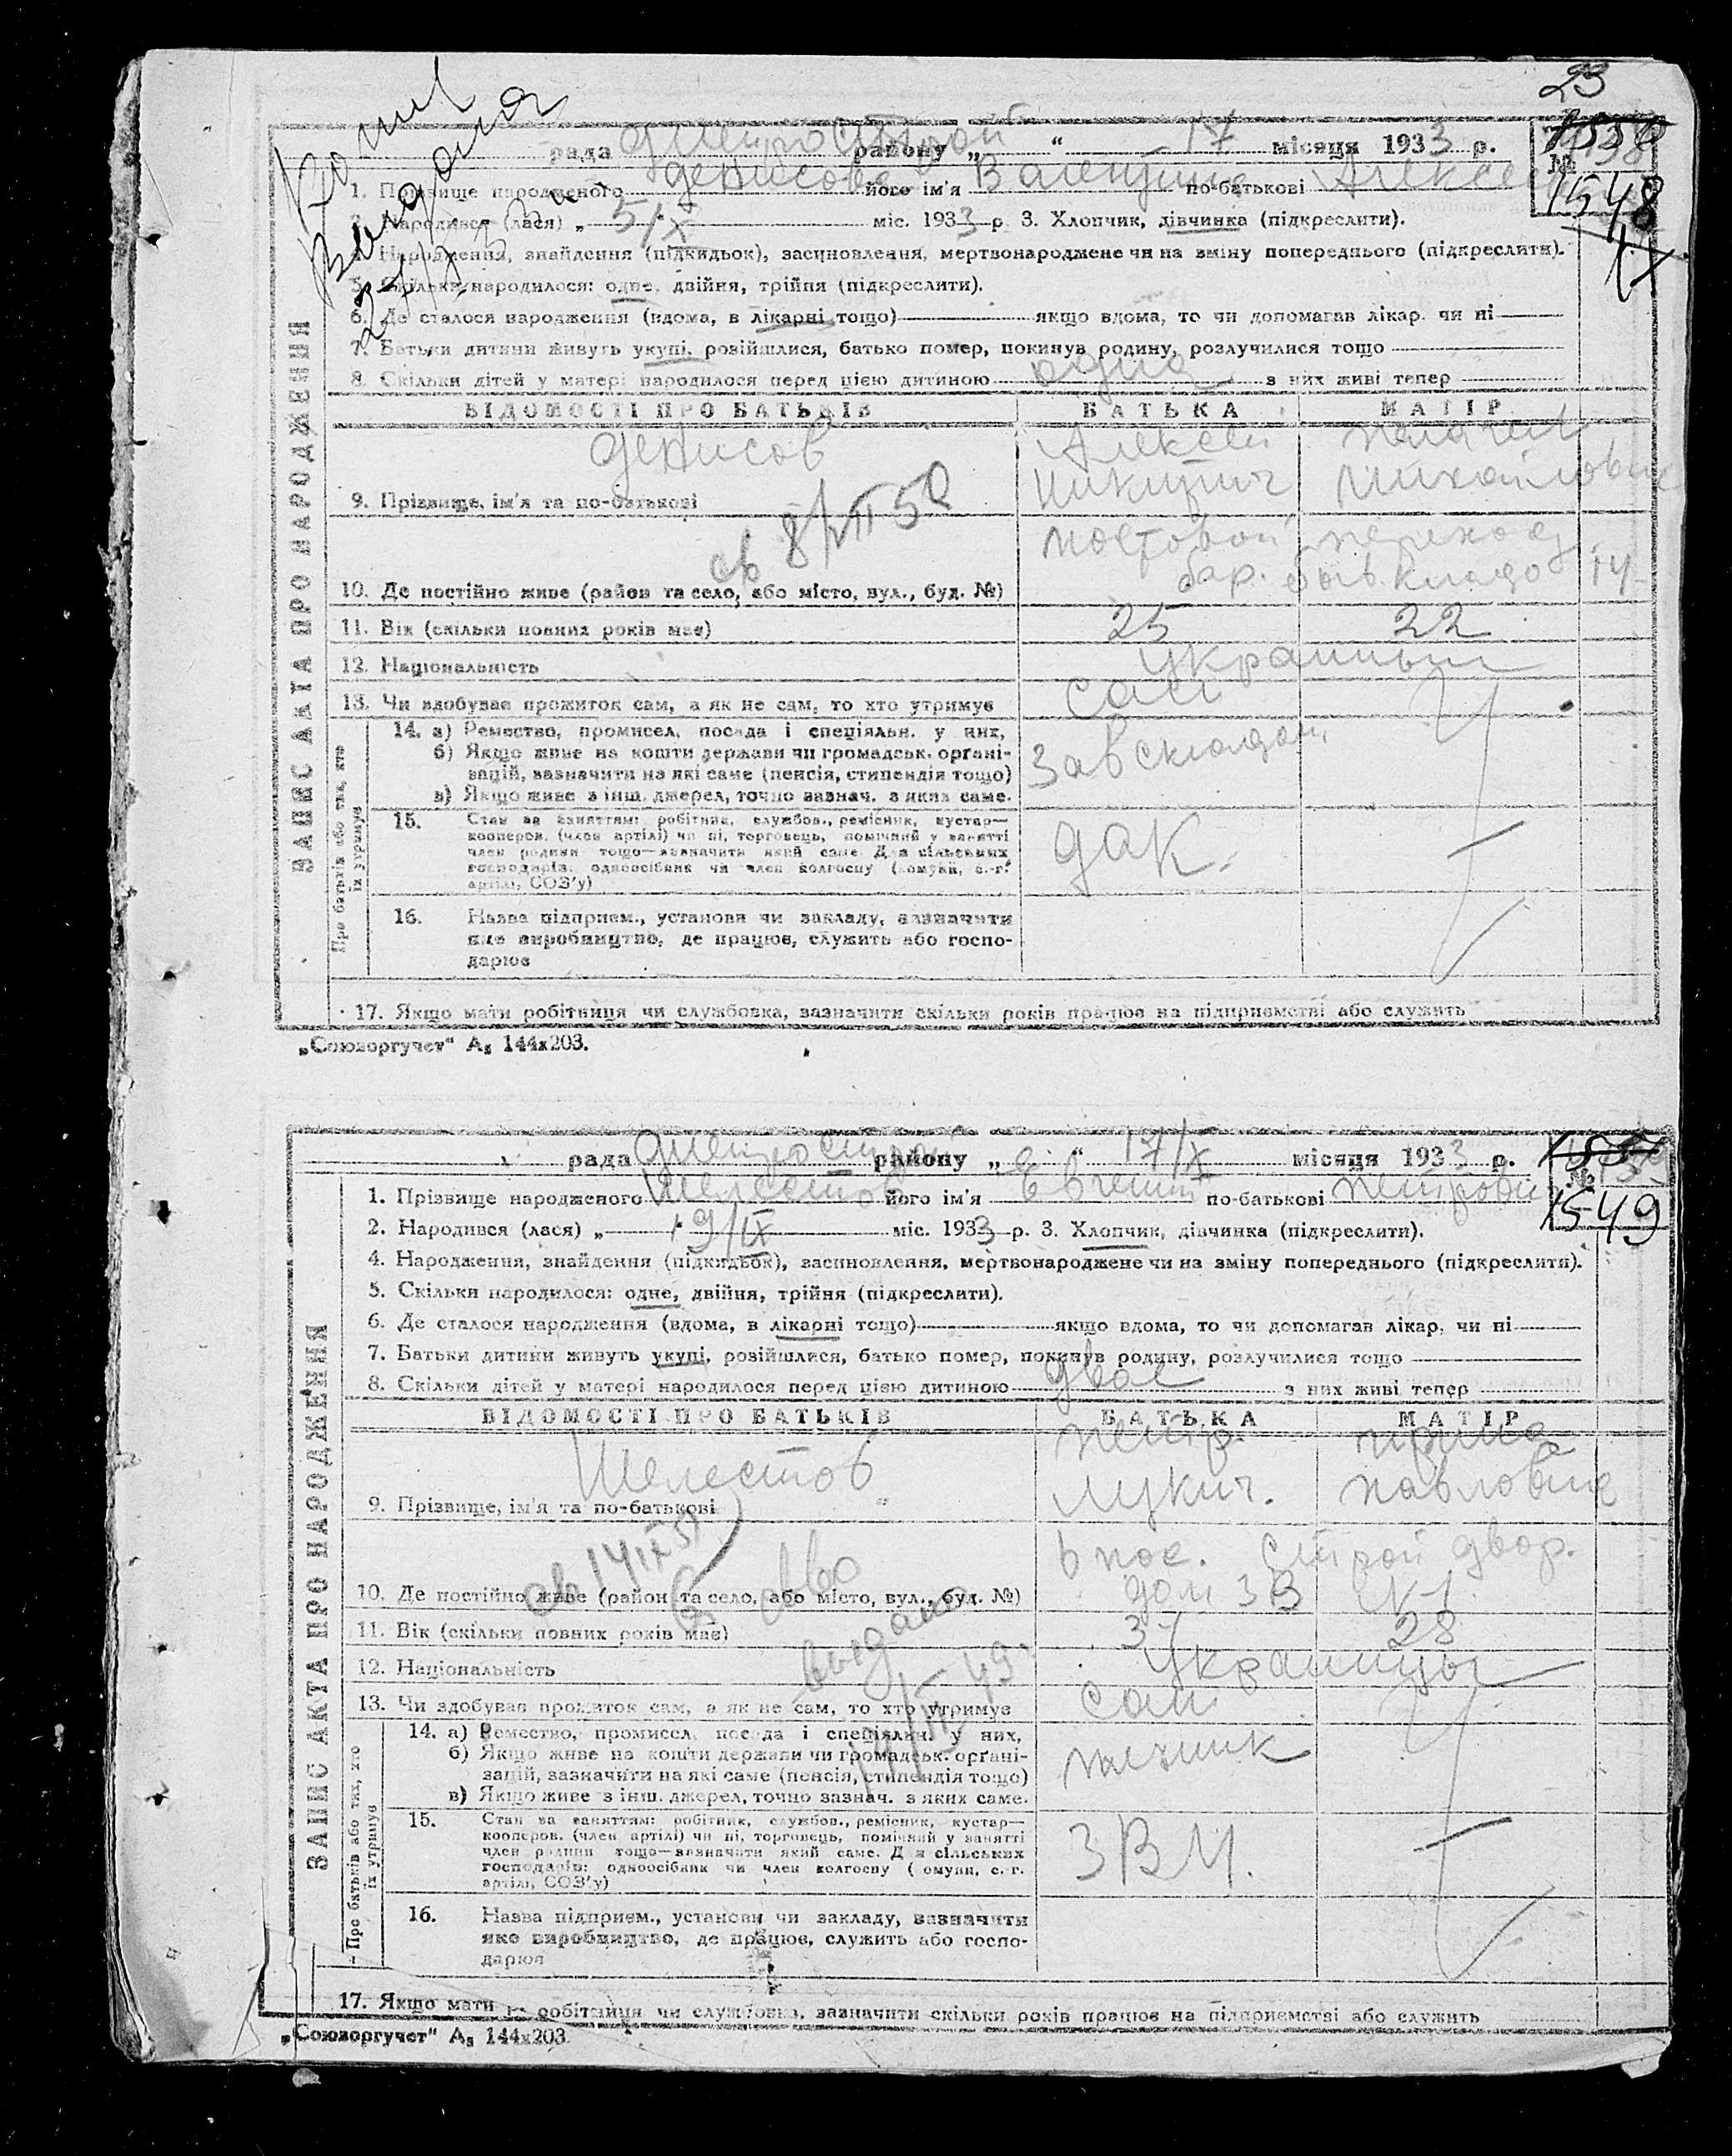 23
рада Днепрострой району „ “ 17 місяця 1933 р.
№
1548
1. Прізвище народженого Денисова його ім'я Валентина по-батькові Алексеев
2. Народився (лася) „ 5/X міс. 1933 р. 3. Хлопчик, дівчинка (підкреслити).
4. Народження, знайдення (підкидьок), засиновлення, мертвонароджене чи на зміну попереднього (підкреслити).
5. Скільки народилося: одне, двійня, трійня (підкреслити).
6. Де сталося народження (вдома, в лікарні тощо) якщо вдома, то чи допомагав лікар. чи ні
7. Батьки дитини живуть укупі, розійшлися, батько помер, покинув родину, розлучилися тощо
8. Скільки дітей у матері народилося перед цією дитиною одна з них живі тепер
ВІДОМОСТІ ПРО БАТЬКІВ БАТЬКА МАТІР
Денисов Алексей Пелагея
9. Прізвище, ім'я та по-батькові Никитич Михайловна
св 8/VII 50
Мостовой переход
10. Де постійно живе (район та село, або місто, вул., буд. №) бар. 14
11. Вік (скільки повних років має) 25 22
12. Національність Украинцы
13. Чи здобуває прожиток сам, а як не сам, то хто утримує сам
14. а) Ремество, промисел, посада і спеціяльн. у них,
б) Якщо живе на кошти держави чи громадськ. органі-
зацій, зазначити на які саме (пенсія, стипендія тощо) Завскладом
в) Якщо живе з інш. джерел, точно зазнач. з яких саме.
15. Стан за заняттям: робітник, службов., ремісник, кустар—
кооперов. (член артілі) чи ні, торговець, помічний у занятті
член родини тощо—зазначити який саме. Для сільських
господарів: одноосібник чи член колгоспу (комуни, с.-г.
артілі, СОЗ'у) ДАК.
16. Назва підприєм., установи чи закладу, зазначити
яке виробництво, де працює, служить або госпо-
дарює
17. Якщо мати робітниця чи службовка, зазначити скільки років працює на підприємстві або служить
ЗАПИС АКТА ПРО НАРОДЖЕННЯ
Про батьків або тих, хто
їх утримує
„Союзоргучет“ А5 144х203.
рада Днепрострой району „ “ 17/X місяця 1933 р.
№
1549
1. Прізвище народженого Шелестов його ім'я Евгений по-батькові Петрович
2. Народився (лася) „ 19/IX міс. 1933 р. 3. Хлопчик, дівчинка (підкреслити).
4. Народження, знайдення (підкидьок), засиновлення, мертвонароджене чи на зміну попереднього (підкреслити).
5. Скільки народилося: одне, двійня, трійня (підкреслити).
6. Де сталося народження (вдома, в лікарні тощо) якщо вдома, то чи допомагав лікар, чи ні
7. Батьки дитини живуть укупі, розійшлися, батько помер, покинув родину, розлучилися тощо
8. Скільки дітей у матері народилося перед цією дитиною двое з них живі тепер
ВІДОМОСТІ ПРО БАТЬКІВ БАТЬКА МАТІР
Шелестов Петр
9. Прізвище, ім'я та по-батькові Лукич. Павловна
6 пос. Строй двор.
10. Де постійно живе (район та село, або місто, вул., буд. №) дом 33
11. Вік (скільки повних років має) 37 28
12. Національність Украинцы
13. Чи здобуває прожиток сам, а як не сам, то хто утримує сам
св-во
выдано
14. а) Ремество, промисел, посада і спеціяльн. у них,
б) Якщо живе на кошти держави чи громадськ. органі-
зацій, зазначити на які саме (пенсія, стипендія тощо) печник
в) Якщо живе з інш. джерел, точно зазнач. з яких саме.
15. Стан за заняттям: робітник, службов., ремісник, кустар—
кооперов. (член артілі) чи ні, торговець, помічний у занятті
член родини тощо—зазначити який саме. Для сільських
господарів: одноосібник чи член колгоспу (комуни, с.-г.
артілі, СОЗ'у)
16. Назва підприєм., установи чи закладу, зазначити
яке виробництво, де працює, служить або госпо-
дарює
17. Якщо мати робітниця чи службовка, зазначити скільки років працює на підприємстві або служить
ЗАПИС АКТА ПРО НАРОДЖЕННЯ
Про батьків або тих, хто
їх утримує
„Союзоргучет“ А5 144х203.